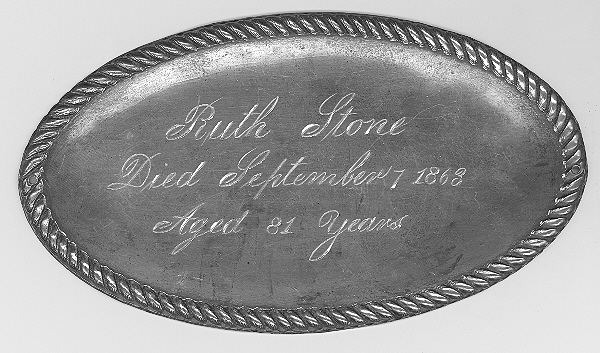 Ruth Stone
Died September 7 1863
Aged 81 Years